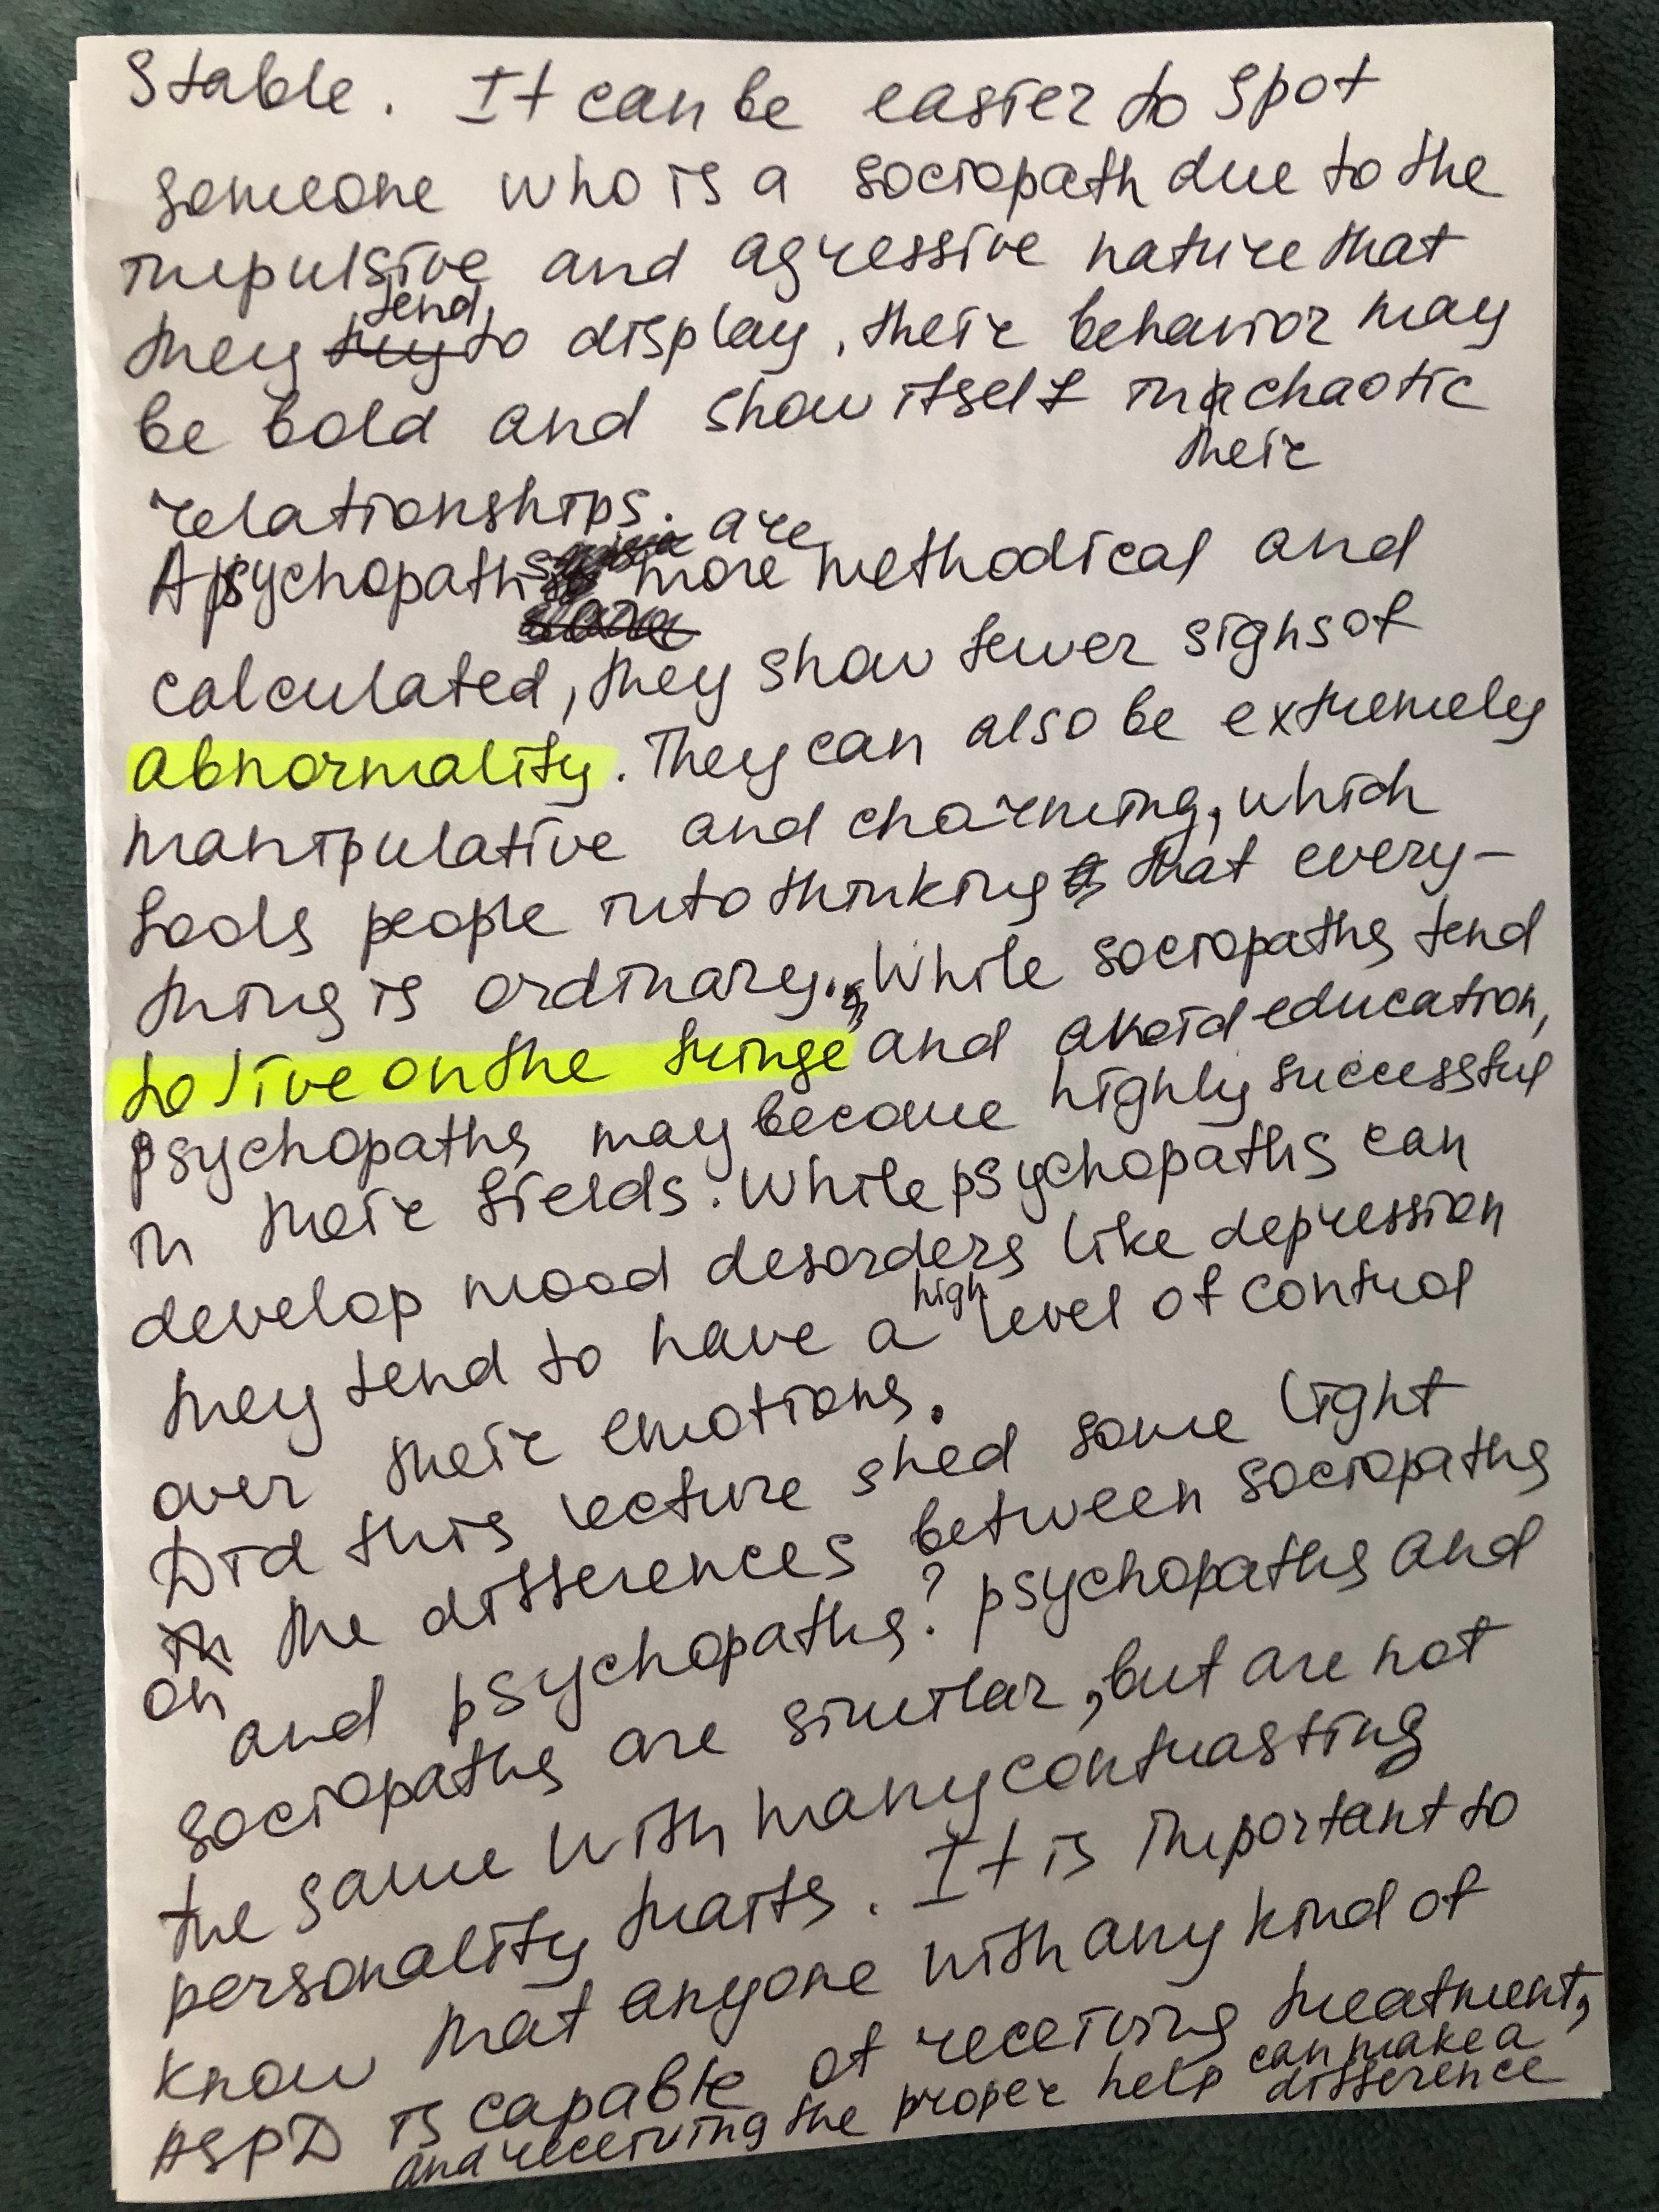 Stable. It can be easier to spot
someone who is a sociopath due to the
impulsive and agressive nature that
they try tend to display, their behavior may
be bold and show itself in a chaotic
their
relationships.
A psychopaths are more methodical and
calculated, they show fewer sighs of
abnormality. They can also be extremely
manipulative and charming, which
fools people into thinking that every-
thing is ordinary. While sociopaths tend
to live on the fringe and avoid education,
psychopaths may become highly successful
in their fields. While psychopaths can
develop mood desorders like depression
they tend to have a high level of control
over their emotions.
Did this lecture shed some light
in the differences between sociopaths
on and psychopaths? psychopaths and
sociopaths are similar, but are not
the same with many contrasting
personality traits. It is important to
know that anyone with any kind of
ASPD is capable of receiving treatment,
and receiving the proper help can make a
difference